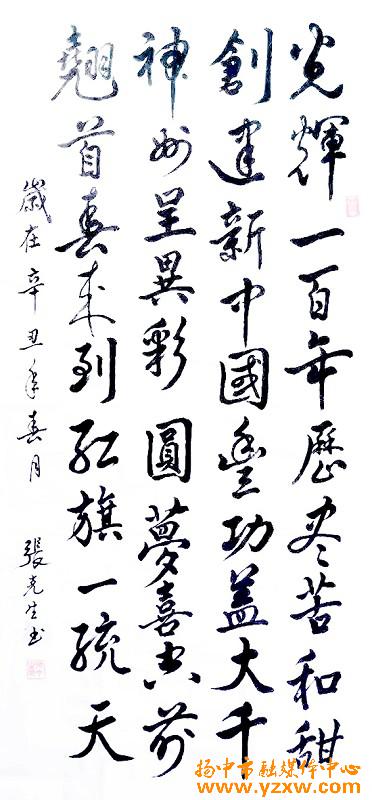 光輝一百年歷盡苦和甜
創建新中國豐功蓋大千
神州呈異彩圓夢喜空前
翹首春來到紅旗一統天
歲在辛丑年春月
張克生书
扬中市融媒体中心
www.yzxw.com